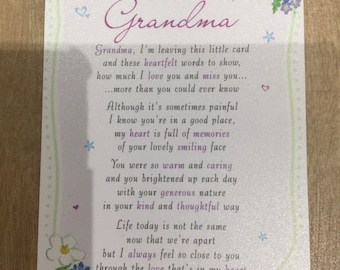 Grandma
Grandma, I'm leaving this little card
and these heartfelt words to show,
how much I love you and miss you...
...more than you could ever know
Although it's sometimes painful
I know you're in a good place,
my heart is full of memories
of your lovely smiling face
You were so warm and caring
and you brightened up each day
with your generous nature
in your kind and thoughtful way
Life today is not the same
now that we're apart
but I always feel so close to you
through the love that's in my heart